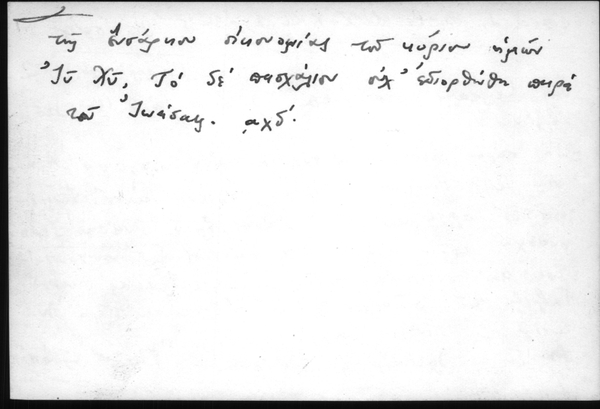 τῆς ἐνσάρκου οἰκονομίας τοῦ κυρίου ἡμῶν
Ἰῦ Χῦ, Τὸ δὲ πασχάλιον οὐχ' ἐδιορθώθη παρὰ
τοῦ Ἰωάσαφ. ͵αχδ΄.